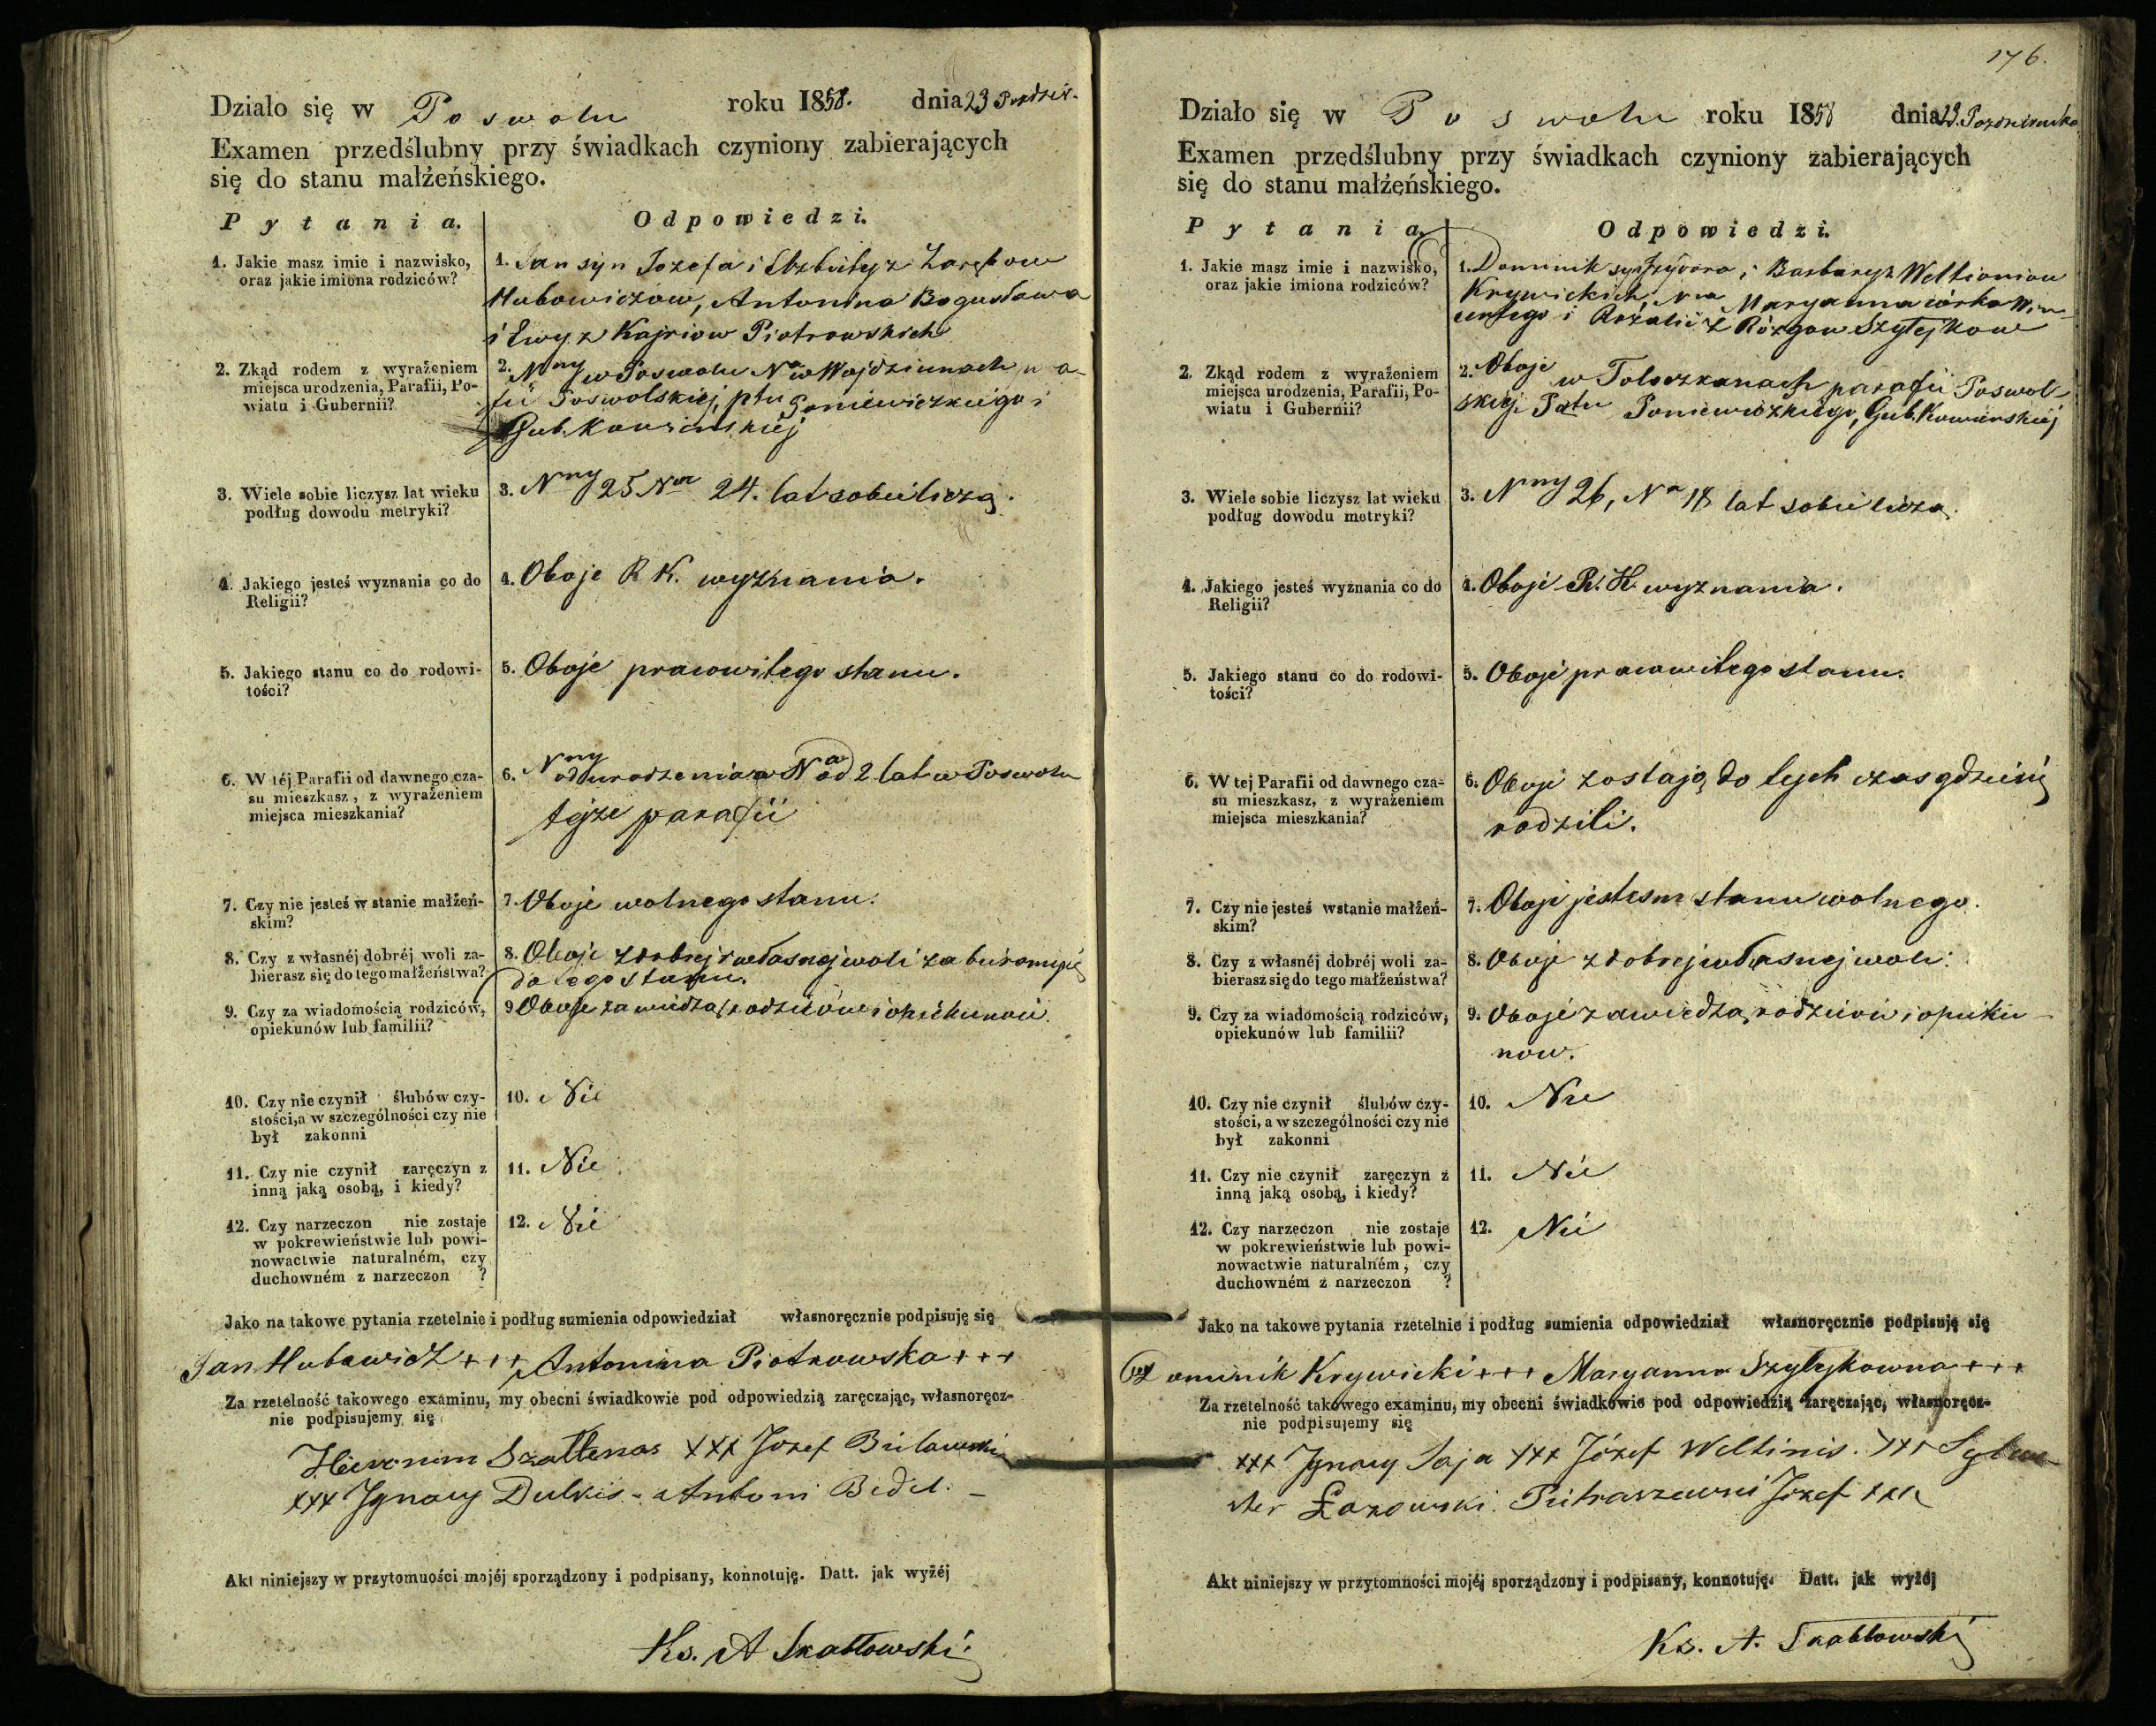 Działo się w Poswolu roku 1858. dnia 23 Paździer.
Examen przedślubny przy świadkach czyniony zabierających
się do stanu małżeńskiego.
Pytania. Odpowiedzi.
1. Jakie masz imie i nazwisko,
oraz jakie imiona rodziców?
1. Jan syn Jozefa i Elzbiety z Zarębow
Hubowiczow, Antonina Bogusława
i Ewy z Kajriow Piotrowskich
2. Zkąd rodem z wyrażeniem
miejsca urodzenia, Parafii, Po-
wiatu i Gubernii?
2. Nny w Poswolu Na w Wojdziunach para-
fii Poswolskiej, ptu Poniewiezkiego i
Gub. Kowienskiej
3. Wiele sobie liczysz lat wieku
podług dowodu metryki?
3. Nny 25 Na 24. lat sobie liczą.
4. Jakiego jesteś wyznania co do
Religii?
4. Oboje R K. wyznania.
5. Jakiego stanu co do rodowi-
tości?
5. Oboje pracowitego stanu.
6. W téj Parafii od dawnego cza-
su mieszkasz, z wyrażeniem
miejsca mieszkania?
6. Nny od urodzenia a Na od 2 lat w Poswolu
tejże parafii
7. Czy nie jesteś w stanie małżeń-
skim?
7. Oboje wolnego stanu.
8. Czy z własnéj dobréj woli za-
bierasz się do tego małżeństwa?
8. Oboje z dobrej i własnej woli zabieramy się
do tego stanu.
9. Czy za wiadomością rodziców,
opiekunów lub familii?
9 Oboje za wiedzą rodziców i opiekunow.
10. Czy nie czynił ślubów czy-
stości, a w szczególności czy nie
był zakonni
10. Nie
11. Czy nie czynił zaręczyn z
inną jaką osobą, i kiedy?
11. Nie
12. Czy narzeczon nie zostaje
w pokrewieństwie lub powi-
nowactwie naturalném, czy
duchowném z narzeczon ?
12. Nie
Jako na takowe pytania rzetelnie i podług sumienia odpowiedział własnoręcznie podpisuję się
Jan Hubowicz +++ Antonina Piotrowska +++
Za rzetelność takowego examinu, my obecni świadkowie pod odpowiedzią zaręczając, własnoręcz-
nie podpisujemy się
Hieronim Szattenas xxx Jozef Bulawski
xxx Ignacy Dulkis - Antoni Bedel. -
Akt niniejszy w przytomuości mojéj sporządzony i podpisany, konnotuję. Datt. jak wyżéj
Ks. A Skabłowski
176.
Działo się w Poswolu roku 1858 dnia 23. Pazdziernika
Examen przedślubny przy świadkach czyniony zabierających
się do stanu małżeńskiego.
Pytania. Odpowiedzi.
1. Jakie masz imie i nazwisko,
oraz jakie imiona rodziców?
1. Dominik syn Izydora i Barbary z Weltioniow
Krywickich, Na Maryanna córka Win-
centego i Rozalii z Rózgow Szylejkow
2. Zkąd rodem z wyrażeniem
miejsca urodzenia, Parafii, Po-
wiatu i Gubernii?
2. Oboje w Toloczkanach parafii Poswol-
skiej Patu Poniewiezkiego, Gub. Kowienskiej
3. Wiele sobie liczysz lat wieku
podług dowodu metryki?
3. Nny 26, Na 18 lat sobie liczą.
4. Jakiego jesteś wyznania co do
Religii?
4. Oboje R. K. wyznania.
5. Jakiego stanu co do rodowi-
tości?
5. Oboje pracowitego stanu.
6. W tej Parafii od dawnego cza-
su mieszkasz, z wyrażeniem
miejsca mieszkania?
6. Oboje zostają do tych czas gdzie się
rodzili.
7. Czy nie jesteś w stanie małżeń-
skim?
7. Oboje jestesm stanu wolnego.
8. Czy z własnéj dobréj woli za-
bierasz się do tego małżeństwa?
8. Oboje z dobrej własnej woli.
9. Czy za wiadomością rodziców,
opiekunów lub familii?
9. Oboje za wiedzą rodzicow i opieku-
now.
10. Czy nie czynił ślubów czy-
stości, a w szczególności czy nie
był zakonni
10. Nie
11. Czy nie czynił zaręczyn z
inną jaką osobą, i kiedy?
11. Nie
12. Czy narzeczon nie zostaje
w pokrewieństwie lub powi-
nowactwie naturalném, czy
duchowném z narzeczon ?
12. Nie
Jako na takowe pytania rzetelnie i podług sumienia odpowiedział własnoręcznie podpisuję się
Dominik Krywicki +++ Maryanna Szylejkowna +++
Za rzetelność takowego examinu, my obecni świadkowie pod odpowiedzią zaręczając, własnoręcz-
nie podpisujemy się
xxx Ignacy Saja xxx Józef Weltinis. xxx Sylwe-
ster Łazowski. Pietraszewski Jozef xxx
Akt niniejszy w przytomności mojéj sporządzony i podpisany, konnotuję. Datt. jak wyżéj
Ks. A. Skabłowski